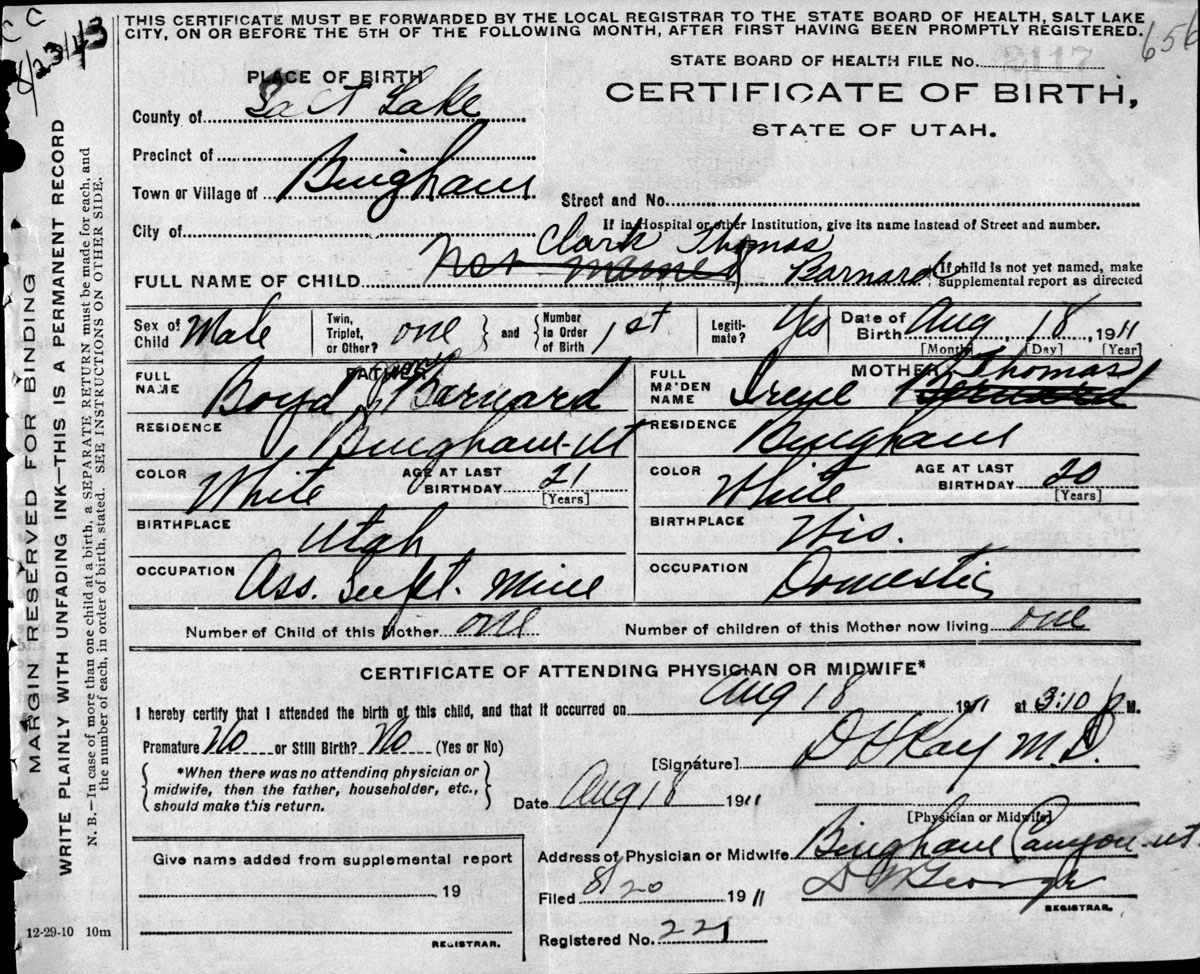 C C
8/23/43
THIS CERTIFICATE MUST BE FORWARDED BY THE LOCAL REGISTRAR TO THE STATE BOARD OF HEALTH, SALT LAKE
CITY, ON OR BEFORE THE 5TH OF THE FOLLOWING MONTH, AFTER FIRST HAVING BEEN PROMPTLY REGISTERED.
656
STATE BOARD OF HEALTH FILE No. 2117
CERTIFICATE OF BIRTH,
STATE OF UTAH.
PLACE OF BIRTH
County of Salt Lake
Precinct of
Town or Village of Bingham
Street and No.
City of
If in Hospital or other Institution, give its name instead of Street and number.
Clark Thomas
FULL NAME OF CHILD Not Named Barnard
If child is not yet named, make supplemental report as directed
Sex of Child Male
Twin, Triplet, or Other? one and Number in Order of Birth 1st
Legitimate? Yes
Date of Birth Aug 18, 1911
[Month] [Day] [Year]
FATHER
FULL NAME Boyd Barnard
RESIDENCE Bingham-Ut
COLOR White AGE AT LAST BIRTHDAY 21
[Years]
BIRTHPLACE Utah
OCCUPATION Ass. Supt. Mine
MOTHER
Thomas
FULL MAIDEN NAME Irene Barnard
RESIDENCE Bingham
COLOR White AGE AT LAST BIRTHDAY 20
[Years]
BIRTHPLACE Wis.
OCCUPATION Domestic
Number of Child of this Mother one Number of children of this Mother now living one
CERTIFICATE OF ATTENDING PHYSICIAN OR MIDWIFE*
I hereby certify that I attended the birth of this child, and that it occurred on Aug 18 1911 at 3:10 P M.
Premature No or Still Birth? No (Yes or No)
*When there was no attending physician or
midwife, then the father, householder, etc.,
should make this return.
[Signature] D H Kay M.D.
Date Aug 18 1911
[Physician or Midwife]
Give name added from supplemental report
19
REGISTRAR.
Address of Physician or Midwife Bingham Canyon-ut.
Filed 8/20 1911
George
REGISTRAR.
Registered No. 221
12-29-10 10m
MARGIN RESERVED FOR BINDING
WRITE PLAINLY WITH UNFADING INK—THIS IS A PERMANENT RECORD
N. B.—In case of more than one child at a birth, a SEPARATE RETURN must be made for each, and
the number of each, in order of birth, stated. SEE INSTRUCTIONS ON OTHER SIDE.